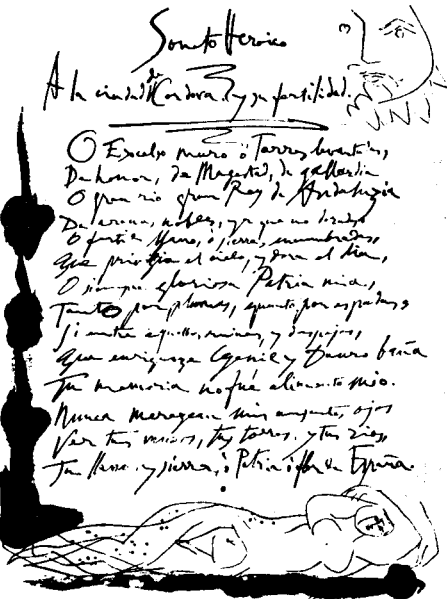 Soneto Heroico
A la ciudad de Cordova y su fertilidad.
O Excelso muro ò Torres levantadas,
De honor, de Magestad, de gallardia
O gran rio gran Rey de Andaluzia
De arenas nobles, ya que no doradas
O fertil llano, ò sierras encumbradas,
Que privilegia el cielo, y dora el dia,
O siempre gloriosa Patria mia,
Tanto por plumas, quanto por espadas,
Si entre aquellas ruinas, y despojos,
Que enriqueze Genil y Dauro baña
Tu memoria no fué alimento mio.
Nunca merezcan mis ausentes ojos
Ver tus muros, tus torres, y tus rios,
Tu llano, y sierra, ò Patria ò flor de España.